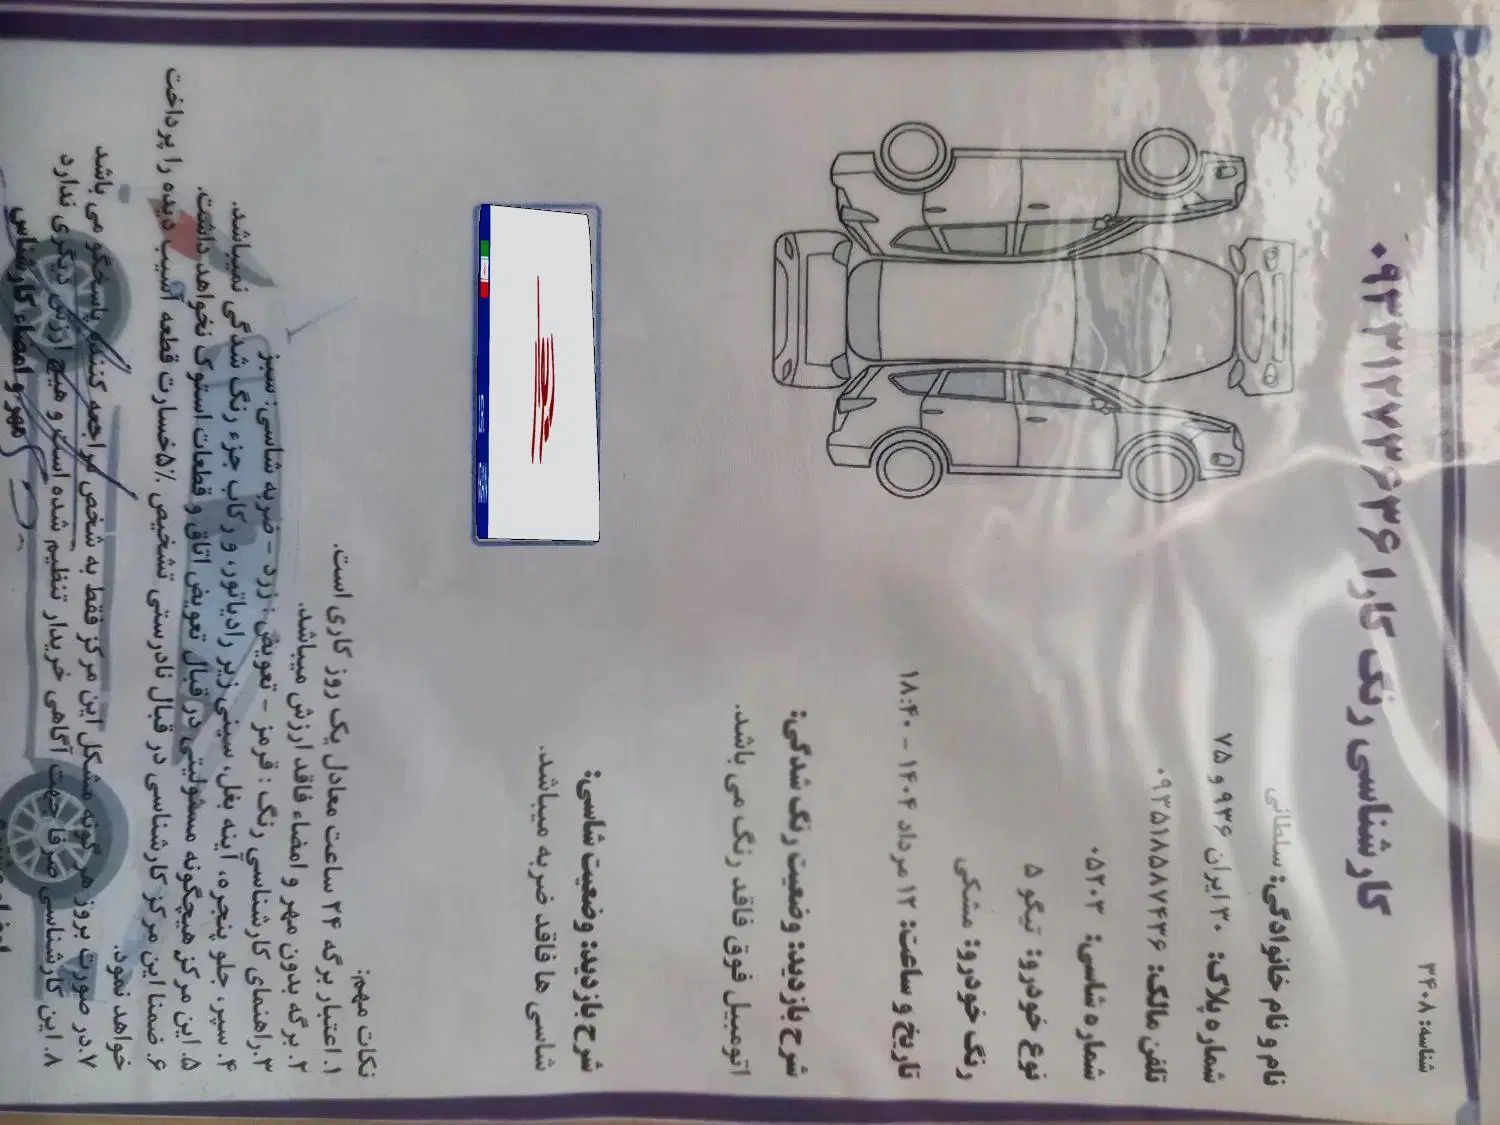 شناسه: ۳۴۰۸
کارشناسی رنگ کارا ۰۹۳۳۱۲۷۳۶۳۶
نام و نام خانوادگی: سلطانی
شماره پلاک: ۳۰ ایران ۹۳۶ و ۷۵
تلفن مالک: ۰۹۳۵۱۸۵۸۷۴۳۶
شماره شاسی: ۰۵۲۰۳
نوع خودرو: تیگو ۵
رنگ خودرو: مشکی
تاریخ و ساعت: ۱۲ مرداد ۱۴۰۴ - ۱۸:۴۰
شرح بازدید: وضعیت رنگ شدگی:
اتومبیل فوق فاقد رنگ می باشد.
شرح بازدید: وضعیت شاسی:
شاسی ها فاقد ضربه میباشد.
نکات مهم:
۱. اعتبار برگه ۲۴ ساعت معادل یک روز کاری است.
۲. برگه بدون مهر و امضاء فاقد ارزش میباشد.
۳. راهنمای کارشناسی رنگ : قرمز - تعویض : زرد - ضربه شاسی: سبز
۴. سپر، جلو پنجره، آینه بغل، سینی زیر رادیاتور، و رکاب جزء رنگ شدگی نمیباشد.
۵. این مرکز هیچگونه مسئولیتی در قبال تعویض اتاق و قطعات استوک نخواهد داشت.
۶. ضمنا این مرکز کارشناسی در قبال نادرستی تشخیص ۵٪ خسارت قطعه آسیب دیده را پرداخت
خواهد نمود.
۷. در صورت بروز هر گونه مشکل این مرکز فقط به شخص مراجعه کننده پاسخگو می باشد
۸. این کارشناسی صرفا جهت آگاهی خریدار تنظیم شده است و هیچ ارزش دیگری ندارد
مهر و امضاء کارشناس